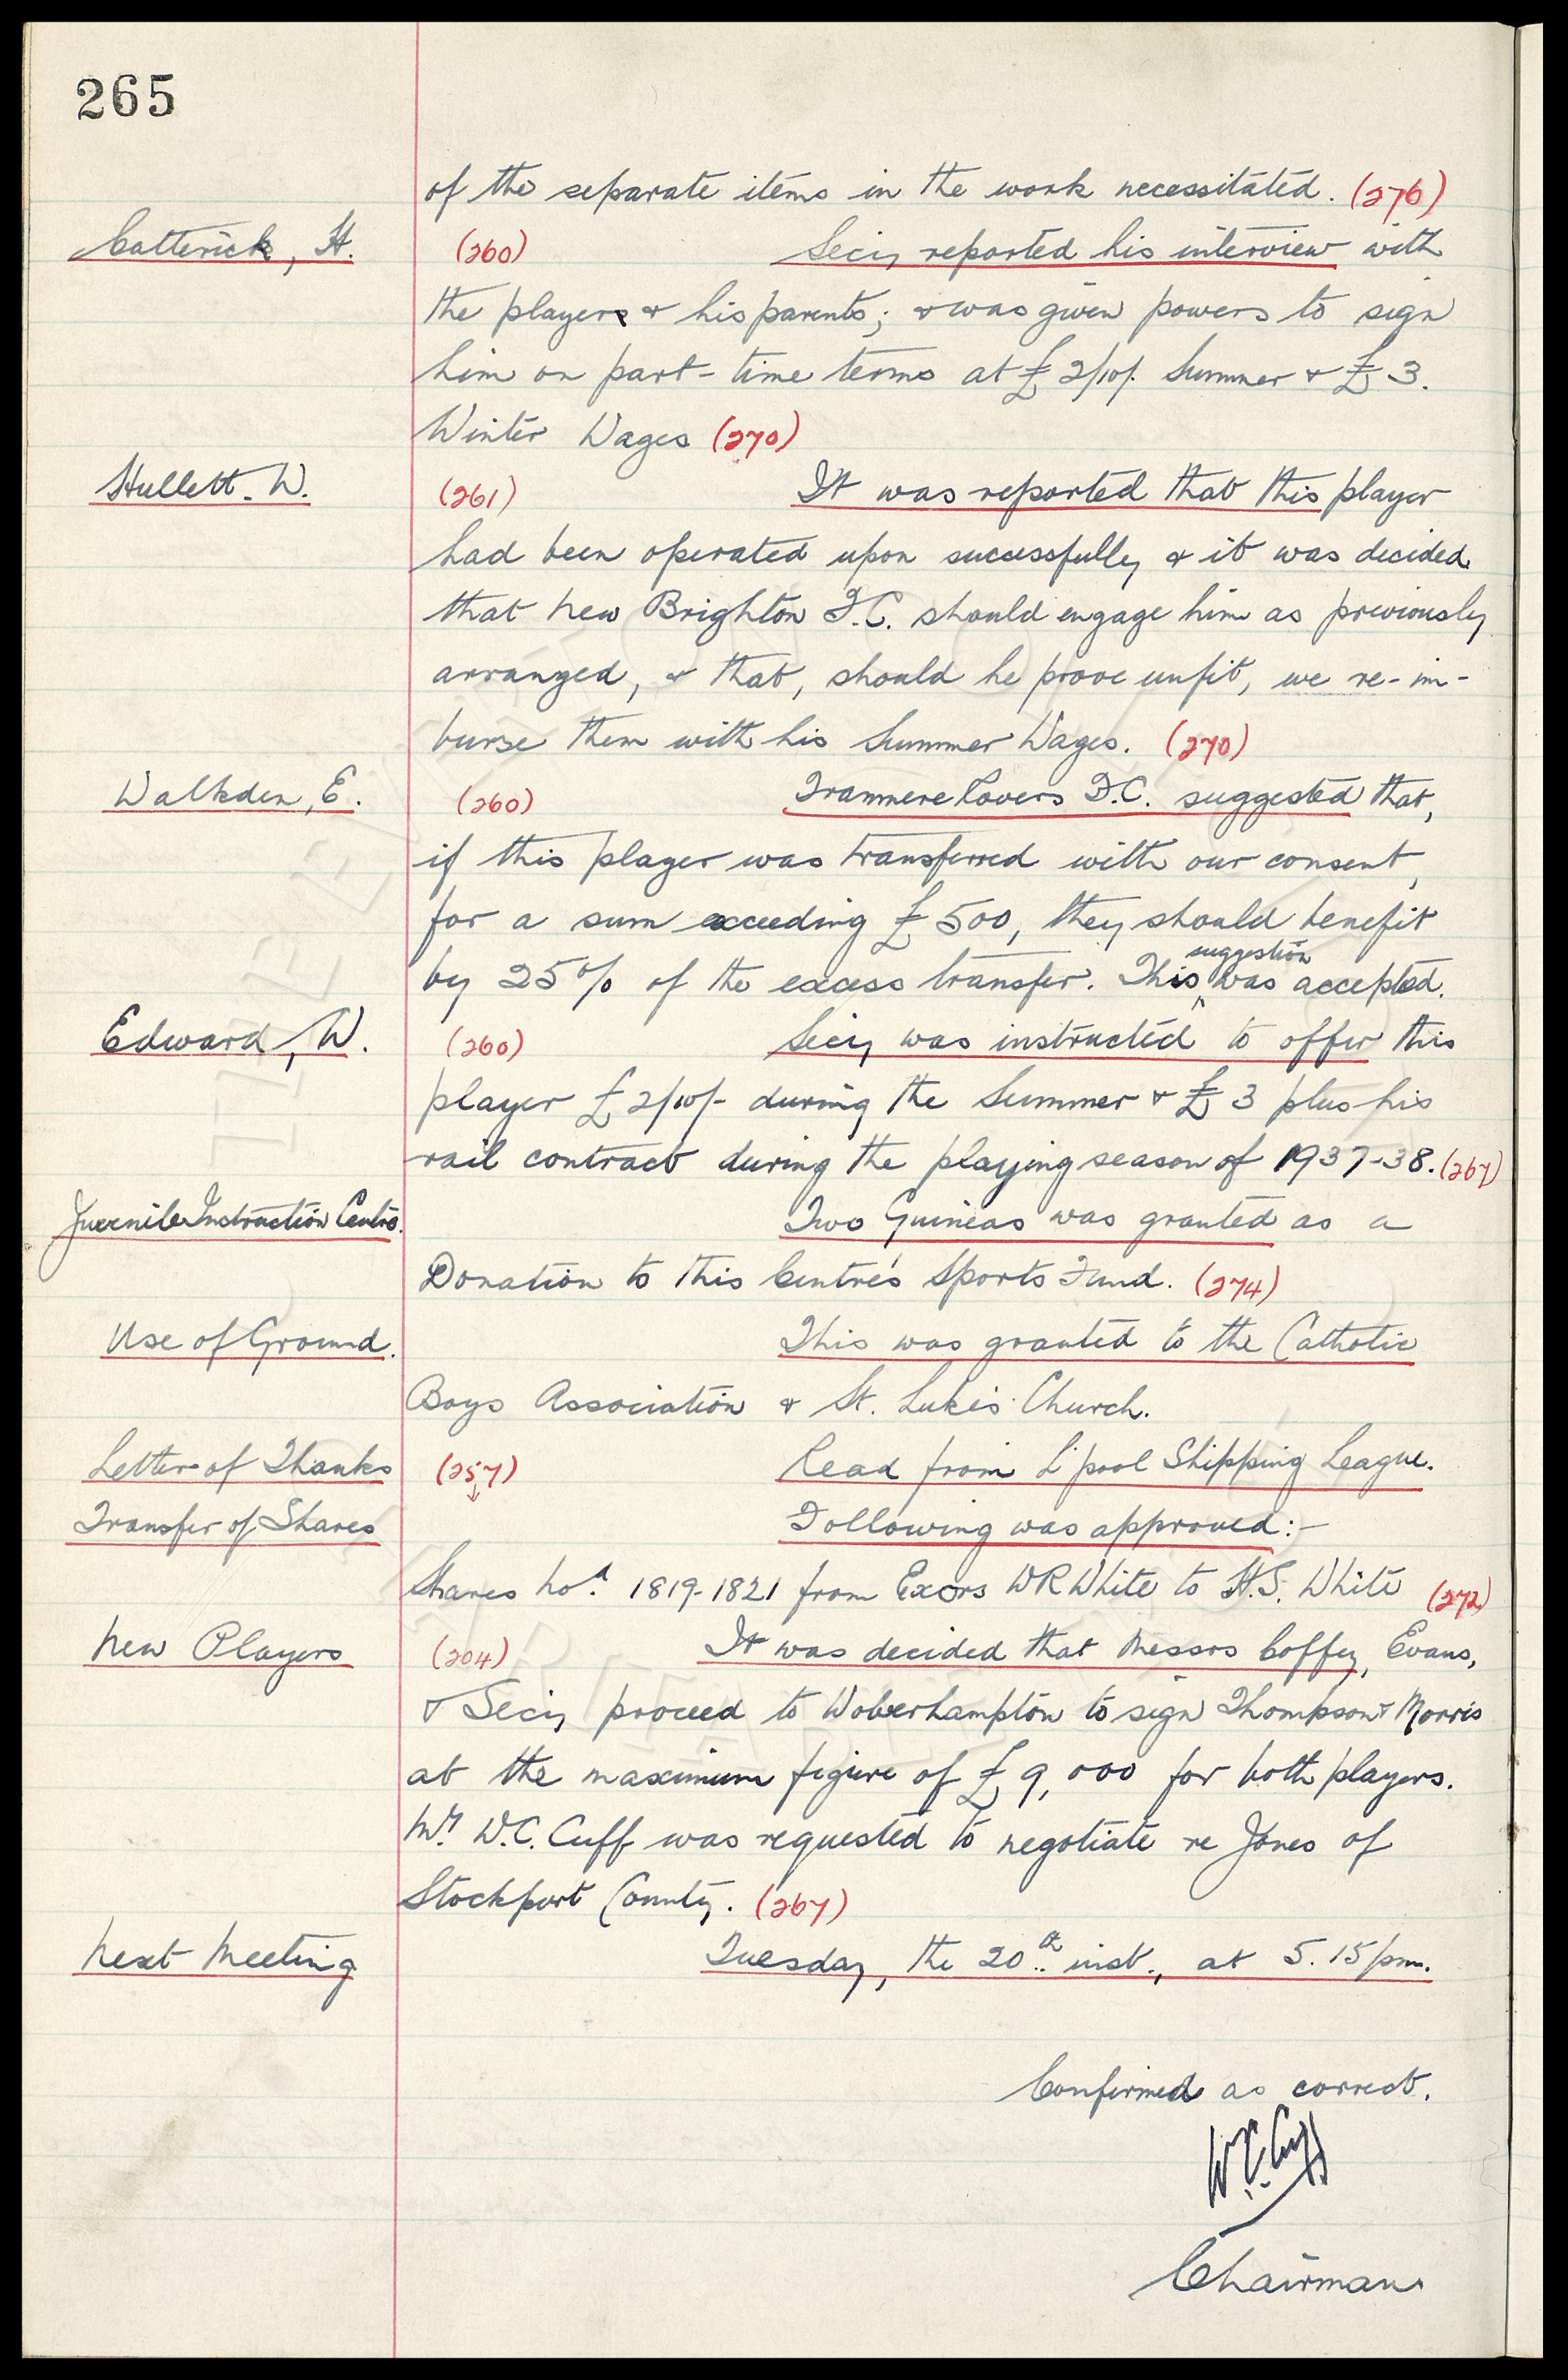 265
of the separate items in the work necessitated. (276)
Catterick, H. (260) Secy reported his interview with
the player & his parents; & was given powers to sign
him on part-time terms at £2/10/- Summer & £3.
Winter Wages (270)
Hullett. W. (261) It was reported that this player
had been operated upon successfully & it was decided
that New Brighton F.C. should engage him as previously
arranged, & that, should he prove unfit, we re-im-
burse them with his Summer Wages. (270)
Walkden, E. (260) Tranmere Rovers F.C. suggested that,
if this player was transferred with our consent,
for a sum exceeding £500, they should benefit
by 25% of the excess transfer. This suggestion was accepted.
Edward, W. (260) Secy was instructed to offer this
player £2/10/- during the Summer & £3 plus his
rail contract during the playing season of 1937-38. (267)
Juvenile Instruction Centre. Two Guineas was granted as a
Donation to this Centre's Sports Fund. (274)
Use of Ground. This was granted to the Catholic
Boys Association & St. Luke's Church.
Letter of Thanks (257) Read from L'pool Shipping League.
Transfer of Shares Following was approved:-
Shares Nos. 1819-1821 from Exors WR White to H.S. White (272)
New Players (204) It was decided that Messrs Coffey, Evans,
& Secy proceed to Wolverhampton to sign Thompson & Morris
at the maximum figure of £9,000 for both players.
Mr. W.C. Cuff was requested to negotiate re Jones of
Stockport County. (267)
Next Meeting Tuesday, the 20th inst., at 5.15 pm.
Confirmed as correct.
W.C. Cuff
Chairman